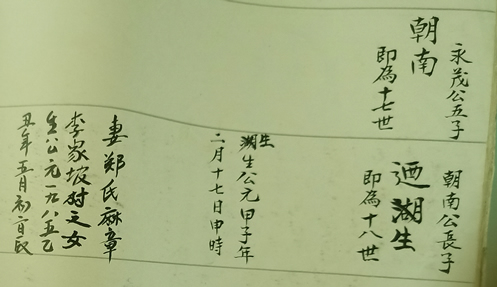 永茂公五子
朝南
即為十七世
朝南公長子
迺湖生
即為十八世
湖生生公元甲子年
二月十七日申時
妻郑氏麻章
李家坡村之女
生公元一九八五乙
丑年五月初二日戌